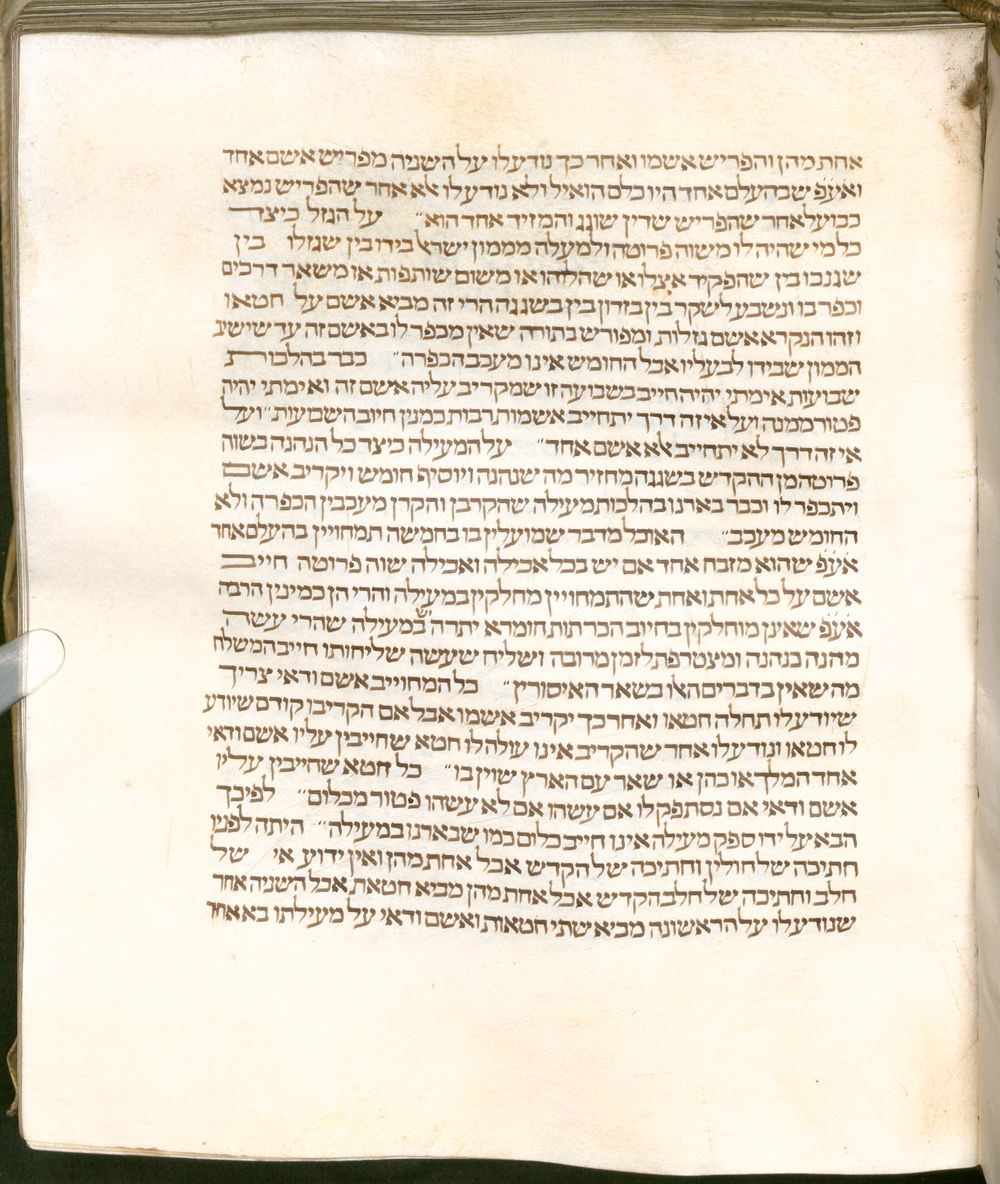 אחת מהן והפריש אשמו ואחר כך נודע לו על השניה מפריש אשם אחד
ואע״פ שבהעלם אחד היו כלם הואיל ולא נודע לו אלא אחר שהפריש נמצא
כבועל אחר שהפריש שדין שוגג והמזיד אחד הוא״ על הגזל כיצד
כל מי שהיה לו משוה פרוטה ולמעלה מממון ישראל בידו בין שגזלו בין
שגנבו בין שהפקיד אצלו או שהלוהו או משום שותפות או משאר דרכים
וכפר בו ונשבע על שקר בין בזדון בין בשגגה הרי זה מביא אשם על חטאו
וזהו הנקרא אשם גזלות ומפורש בתורה שאין מכפר לו באשם זה עד שישיב
הממון שבידו לבעליו אבל החומש אינו מעכב הכפרה״ כבר בהלכות
שבועות אימתי יהיה חייב בשבועה זו שמקריב עליה אשם זה ואימתי יהיה
פטור ממנה ועל איזה דרך יתחייב אשמות רבות כמנין חיוב השבועות״ ועל
איזה דרך לא יתחייב אלא אשם אחד״ על המעילה כיצד כל הנהנה בשוה
פרוטה מן ההקדש בשגגה מחזיר מה שנהנה ויוסיף חומש ויקריב אשם
ויתכפר לו וכבר בארנו בהלכות מעילה שהקרבן והקרן מעכבין הכפרה ולא
החומש מעכב״ האוכל מדבר שמועלין בו בחמשה תמחויין בהעלם אחד
אע״פ שהוא מזבח אחד אם יש בכל אכילה ואכילה שוה פרוטה חייב
אשם על כל אחת ואחת שהתמחויין מחלקין במעילה והרי הן כמינין הרבה
אע״פ שאינן מוחלקין בחיוב הכרתות חומרא יתרה יש במעילה שהרי עשה
מהנה כנהנה ומצטרפת לזמן מרובה ושליח שעשה שליחותו חייב המשלח
מה שאין בדברים האלו בשאר האיסורין״ כל המחוייב אשם ודאי צריך
שיודע לו תחלה חטאו ואחר כך יקריב אשמו אבל אם הקריבו קודם שיודע
לו חטאו ונודע לו אחר שהקריב אינו עולה לו חטא שחייבין עליו אשם ודאי
אחד המלך או כהן או שאר עם הארץ שוין בו״ כל חטא שחייבין עליו
אשם ודאי אם נסתפק לו אם עשהו אם לא עשהו פטור מכלום״ לפיכך
הבא על ידו ספק מעילה אינו חייב כלום כמו שבארנו במעילה״ היתה לפניו
חתיכה של חולין וחתיכה של הקדש אכל אחת מהן ואין ידוע אי של
חלב וחתיכה של חלב הקדש אכל אחת מהן מביא חטאת אכל השניה אחר
שנודע לו על הראשונה מביא שתי חטאות ואשם ודאי על מעילתו בא אחד